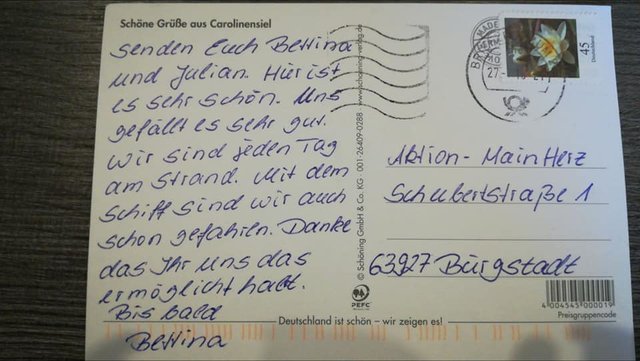 Schöne Grüße aus Carolinensiel
senden Euch Bettina
und Julian. Hier ist
es sehr schön. Uns
gefällt es sehr gut.
Wir sind jeden Tag
am Strand. Mit dem
Schiff sind wir auch
schon gefahren. Danke
das Ihr uns das
ermöglicht habt.
Bis bald
Bettina
© Schöning GmbH & Co. KG 001-26409-0288 www.schoening-verlag.de
45
Deutschland
27
Aktion-MainHerz
Schubertstraße 1
63927 Bürgstadt
PEFC
4 004545 000019
Preisgruppencode
Deutschland ist schön – wir zeigen es!